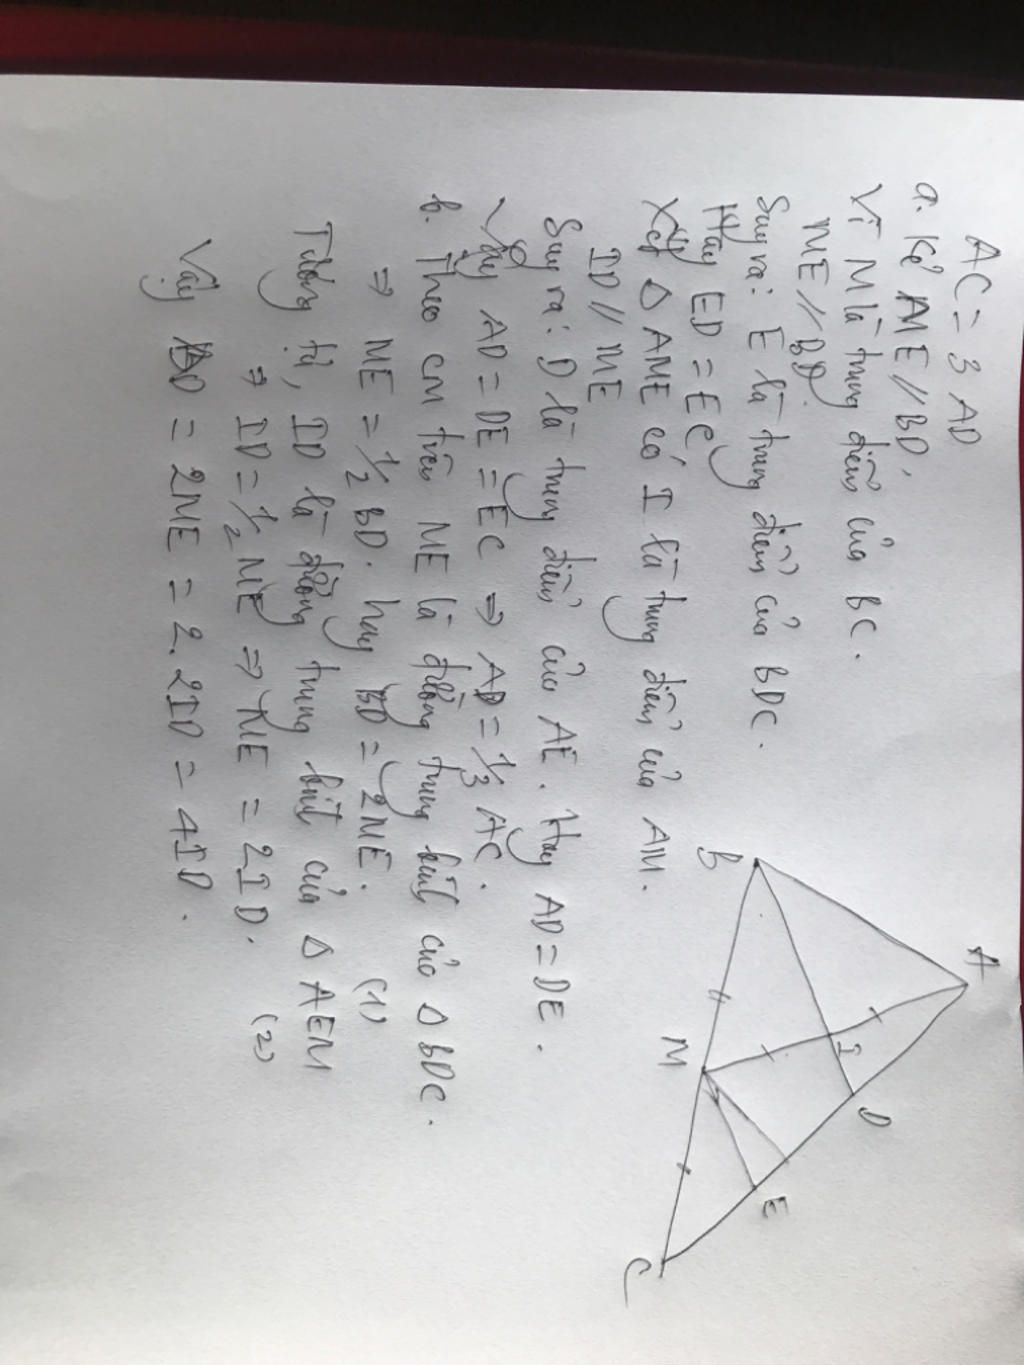 AC = 3 AD
a. Kẻ ME // BD.
Vì M là trung điểm của BC.
ME // BD.
Suy ra: E là trung điểm của BDC.
Hay ED = EC
Xét Δ AME có I là trung điểm của AM.
ID // ME
Suy ra: D là trung điểm của AE. Hay AD = DE.
Vậy AD = DE = EC ⇒ AD = 1/3 AC.
b. Theo cm trên ME là đường trung bình của Δ BDC.
⇒ ME = 1/2 BD. hay BD = 2ME. (1)
Tương tự, ID là đường trung bình của Δ AEM
⇒ ID = 1/2 ME ⇒ ME = 2ID. (2)
Vậy BD = 2ME = 2.2ID = 4ID.
A
B
I
D
M
E
C